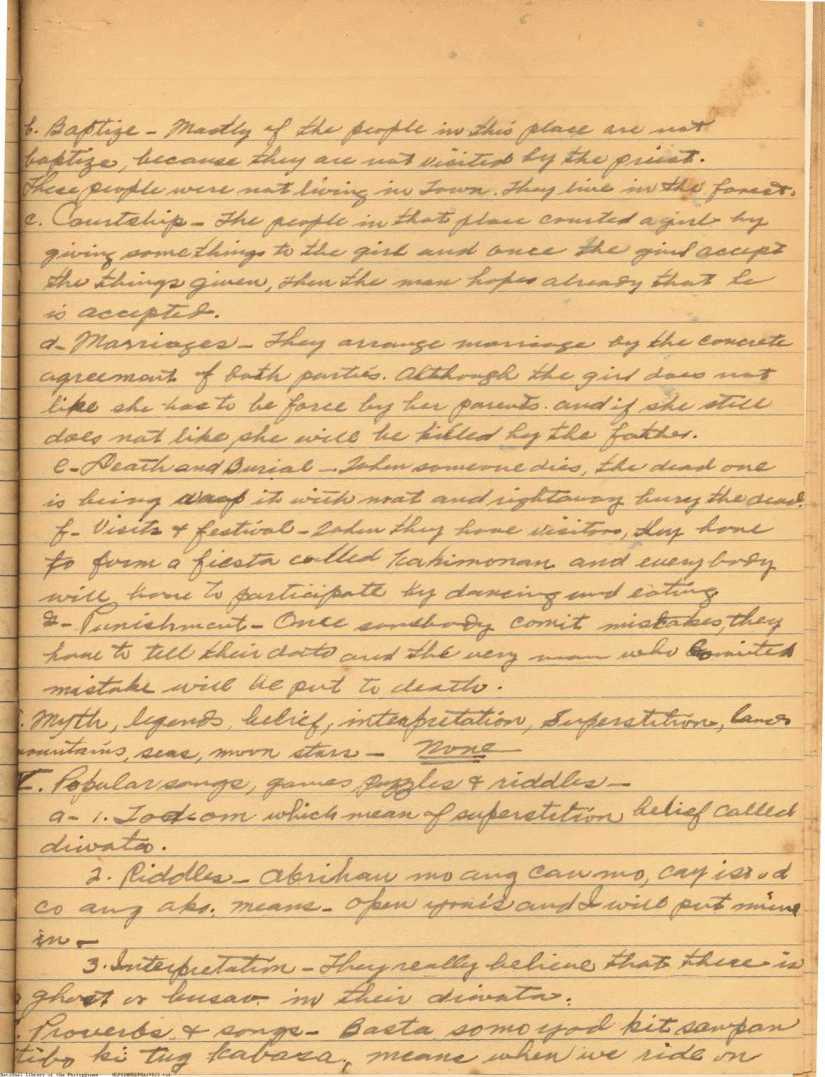 b. Baptize - Mostly of the people in this place are not
baptize, because they are not visited by the priest.
These people were not living in town. They live in the forest.
c. Courtship - The people in that place courted a girl by
giving somethings to the girl and once the girl accept
the things given, then the man hopes already that he
is accepted.
d- Marriages - They arrange marriage by the concrete
agreement of both parties. Although the girl does not
like she has to be force by her parents. and if she still
does not like, she will be killed by the father.
e- Death and Burial - When someone dies, the dead one
is being wrap it with mat and rightaway bury the dead.
f- Visits & festival - When they have visitors, they have
to form a fiesta called and everybody
will have to participate by dancing and eating
g- Punishment - Once somebody comit mistakes, they
have to tell their dato and the very man who comited
mistake will be put to death.
Myth, legends, belief, interpretation, Superstition, lands
mountains, seas, moon stars - None
Popular songs, games, puzzles & riddles -
a- 1. Tod-om which mean of superstition belief called
diwata.
2. Riddles - Abrihan mo ang
co ang means - Open yours and I will put mine
in -
3. Interpretation - They really believe that there is
ghost or busao in their diwata.
Proverbs & songs - Basta
means when we ride on